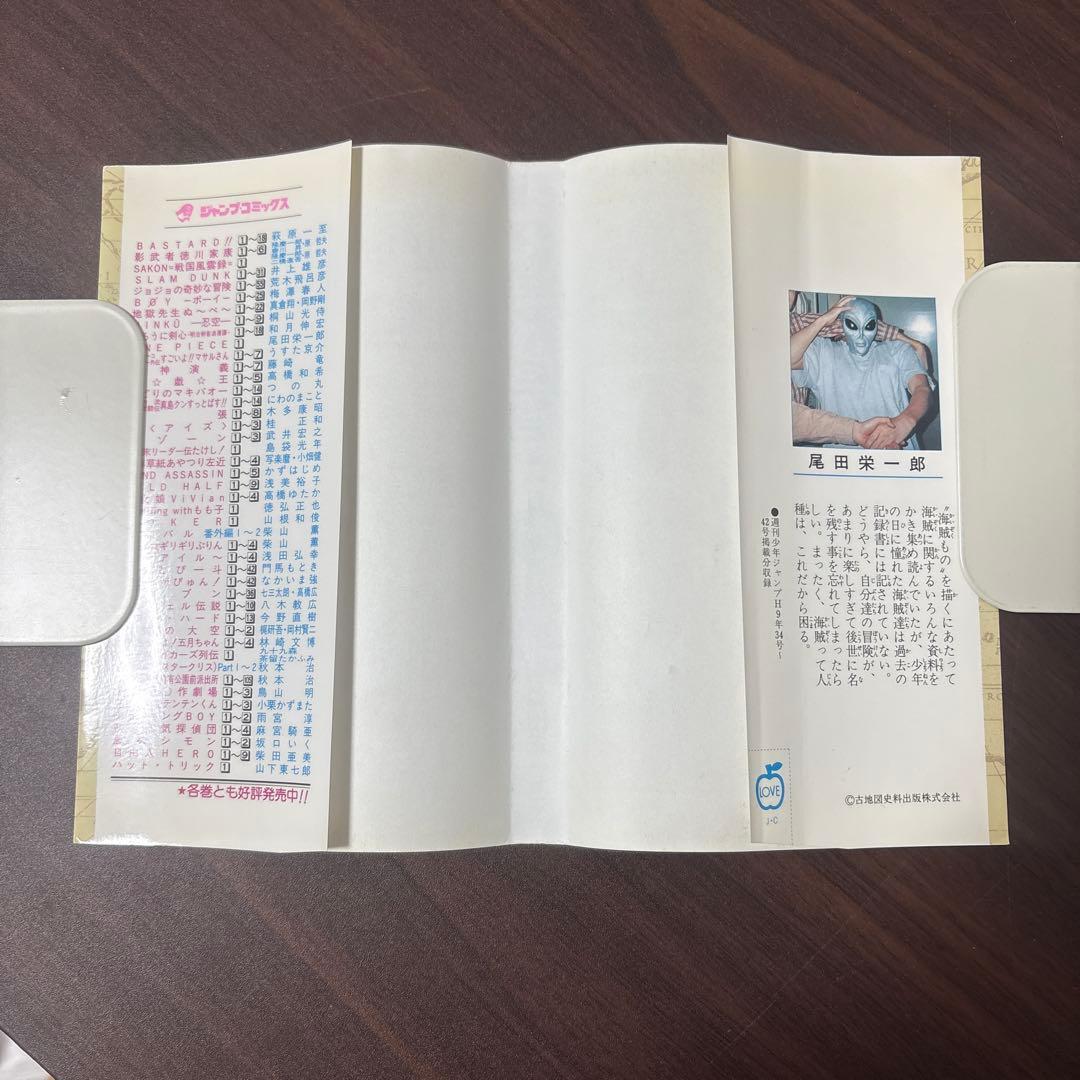 ジャンプ・コミックス
BASTARD!! 1〜18 萩原一至
影武者徳川家康
SAKON=戦国風雲録= 1
SLAM DUNK 井上雄彦
ジョジョの奇妙な冒険 荒木飛呂彦
BØY −ボーイ− 梅澤春人
地獄先生ぬ〜べ〜 真倉翔・岡野剛
INKŪ ―忍空― 桐山光侍
ろうに剣心 和月伸宏
NE PIECE 1 尾田栄一郎
すごいよ!!マサルさん 1〜7 うすた京介
神演義 1〜5 藤崎竜
☆戯☆王 高橋和希
どりのマキバオー 1〜14 つの丸
真島クンすっとばす!! にわのまこと
張 1〜8 木多康昭
〈アイズ〉 1〜3 桂正和
ゾーン 1〜3 武井宏之
末リーダー伝たけし! 1 島袋光年
草紙あやつり左近 1〜4 写楽麿・小畑健
ND ASSASSIN 1〜5 かずはじめ
LD HALF 1〜9 浅美裕子
娘ViVian 1〜4 高橋ゆたか
ing withもも子 1 徳弘正也
KER 1 山根和俊
バル 番外編1〜2 柴山薫
ギリギリぷりん 1〜4 柴山薫
アイル〜 1〜4 浅田弘幸
ぴ一斗 1〜42 門馬もとき
ぴゅん! 1〜42 なかいま強
ブン 七三太朗・高橋広
ェル伝説 1〜10 八木教広
・ハード 1〜13 今野直樹
の大空 1〜2 梶研吾・岡村賢二
!五月ちゃん 1〜4 林崎文博
カーズ列伝 1 九十九森 茶留たかふみ
スタークリス)Part1〜2 秋本治
有公園前派出所 秋本治
作劇場 1〜3 鳥山明
テンテンくん 1〜3 小栗かずまた
ングBOY 1〜2 雨宮淳
気探偵団 1〜4 麻宮騎亜
シモン 1〜2 坂口いく
HERO 1〜9 柴田亜美
ハット・トリック 1 山下東七郎
★各巻とも好評発売中!!
尾田栄一郎
“海賊もの”を描くにあたって
海賊に関するいろんな資料を
かき集め読んでいたが、少年
の日に憧れた海賊達は過去の
記録書には記されていない。
どうやら、自分達の冒険が、
あまりに楽しすぎて後世に名
を残す事を忘れてしまったら
しい。まったく、海賊って人
種は、これだから困る。
●週刊少年ジャンプH9年34号〜
42号掲載分収録
LOVE
J・C
©古地図史料出版株式会社